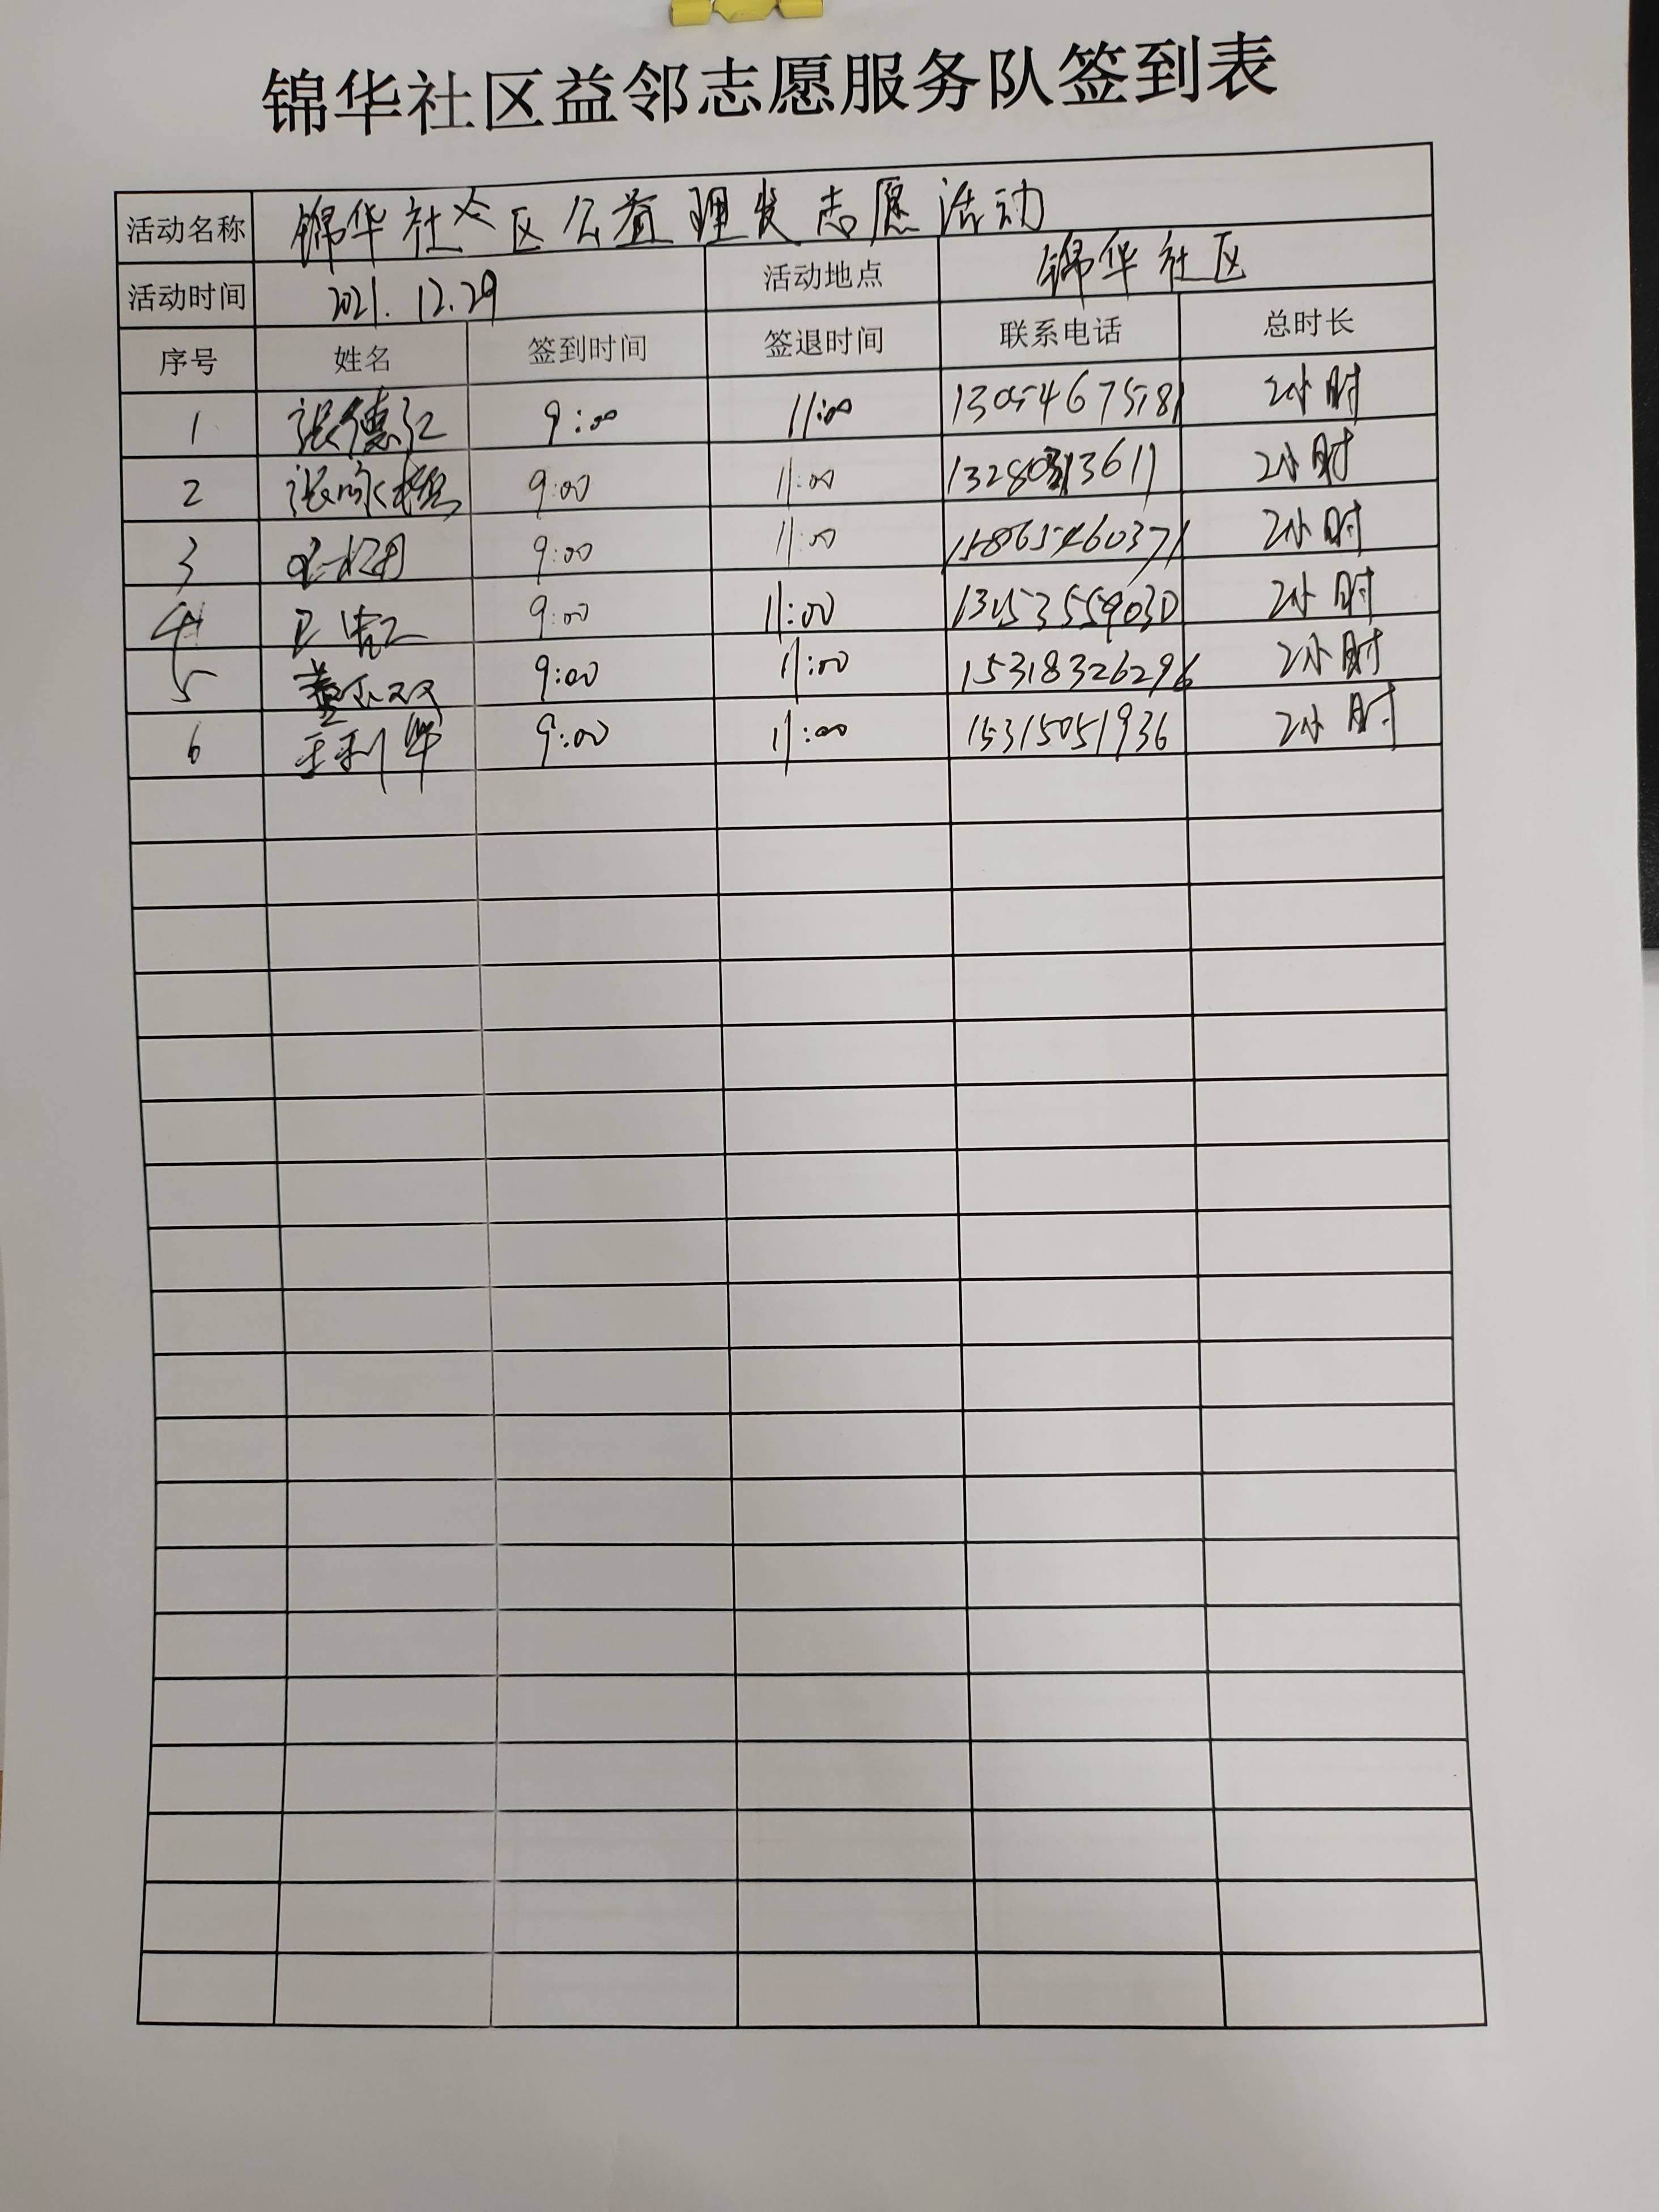 锦华社区益邻志愿服务队签到表
活动名称 锦华社区公益理发志愿活动
活动时间 2021.12.29 活动地点 锦华社区
序号 姓名 签到时间 签退时间 联系电话 总时长
1 张德红 9:00 11:00 13054675781 2小时
2 9:00 11:00 2小时
3 9:00 11:00 15865460371 2小时
4 9:00 11:00 2小时
5 9:00 11:00 15318326296 2小时
6 王利华 9:00 11:00 15315051936 2小时